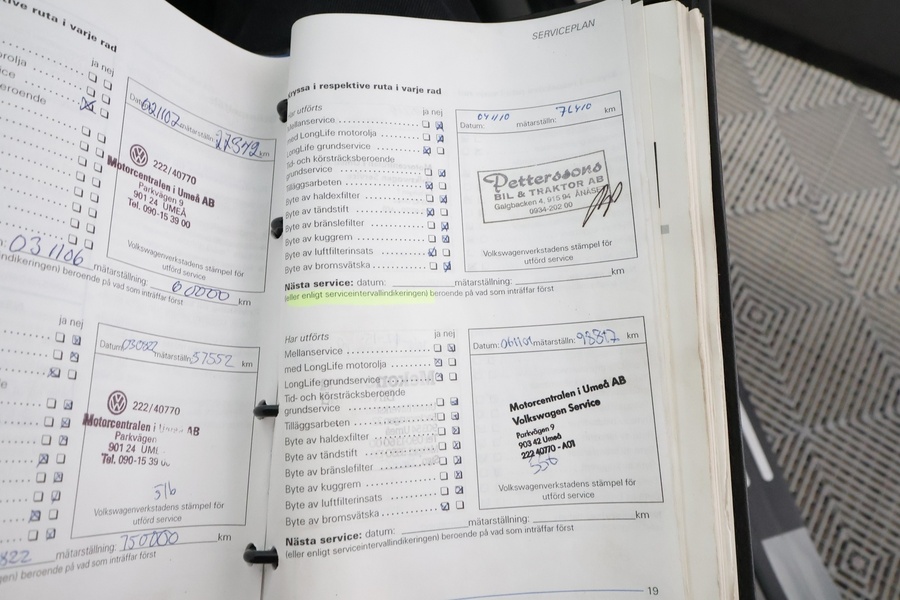 tive ruta i varje rad
ja nej
orolja
ice
eroende
Datum: 021107 mätarställn: 27542 km
222/40770
Motorcentralen i Umeå AB
Parkvägen 9
901 24 UMEÅ
Tel. 090-15 39 00
Volkswagenverkstadens stämpel för
utförd service
031106 mätarställning: 60000 km
ndikeringen) beroende på vad som inträffar först
ja nej
mätarställn: 57552 km
222/40770
Motorcentralen i Umeå AB
Parkvägen
901 24 UME
Tel. 090-15 39 0
516
Volkswagenverkstadens stämpel för
utförd service
822 mätarställning: 750000 km
gen) beroende på vad som inträffar först
SERVICEPLAN
Kryssa i respektive ruta i varje rad
Har utförts ja nej
Mellanservice
med LongLife motorolja
LongLife grundservice
Tid- och körsträcksberoende
grundservice
Tilläggsarbeten
Byte av haldexfilter
Byte av tändstift
Byte av bränslefilter
Byte av kuggrem
Byte av luftfilterinsats
Byte av bromsvätska
Nästa service: datum: mätarställning: km
(eller enligt serviceintervallindikeringen) beroende på vad som inträffar först
Datum: 041110 mätarställn: 76410 km
Petterssons
BIL & TRAKTOR AB
Galgbacken 4, 915 94 ÅNÄSET
0934-202 00
Volkswagenverkstadens stämpel för
utförd service
Har utförts ja nej
Mellanservice
med LongLife motorolja
LongLife grundservice
Tid- och körsträcksberoende
grundservice
Tilläggsarbeten
Byte av haldexfilter
Byte av tändstift
Byte av bränslefilter
Byte av kuggrem
Byte av luftfilterinsats
Byte av bromsvätska
Nästa service: datum: mätarställning: km
(eller enligt serviceintervallindikeringen) beroende på vad som inträffar först
Datum: mätarställn: 98817 km
Motorcentralen i Umeå AB
Volkswagen Service
Parkvägen 9
903 42 Umeå
222 40770 - A01
556
Volkswagenverkstadens stämpel för
utförd service
19